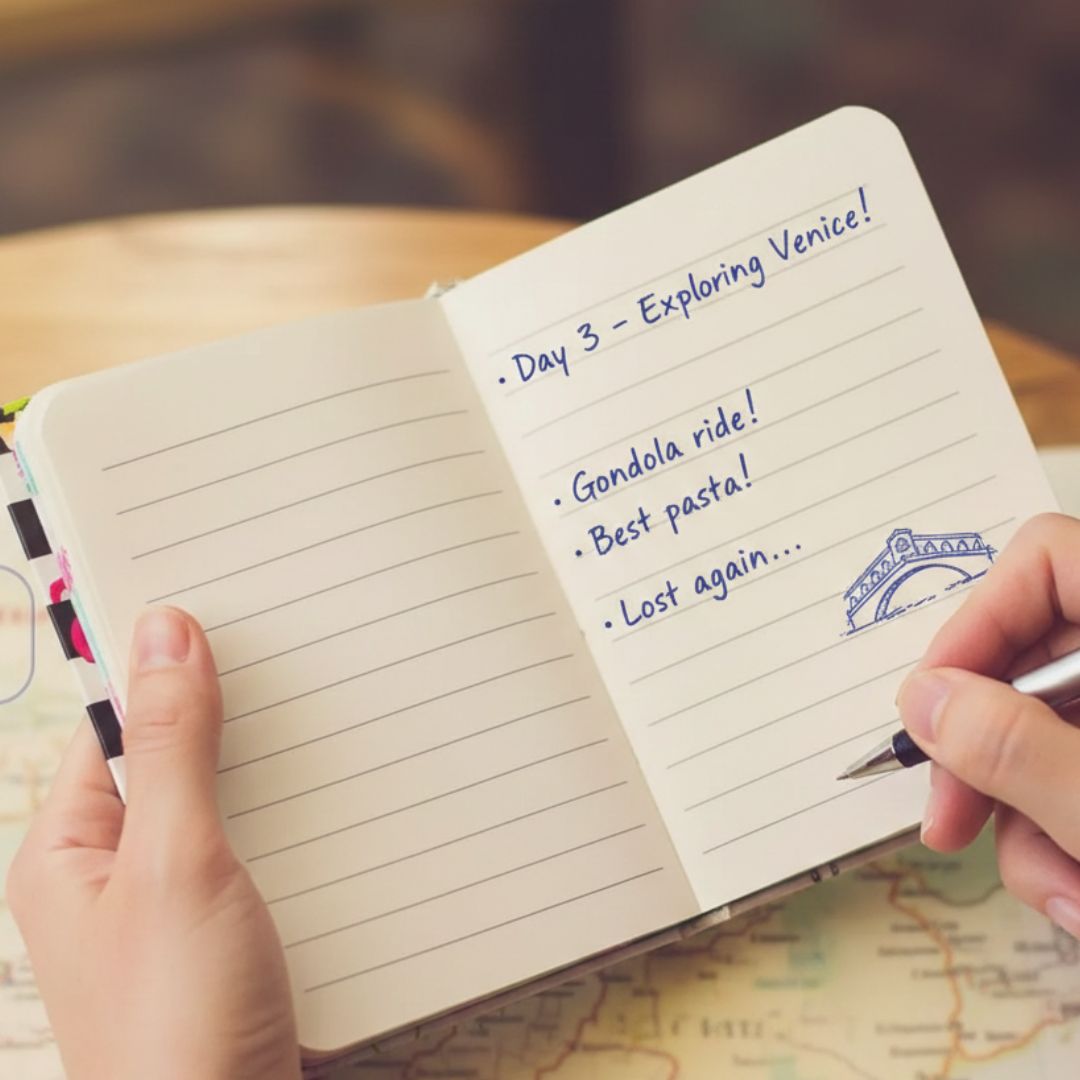 · Day 3 - Exploring Venice!
· Gondola ride!
· Best pasta!
· Lost again...